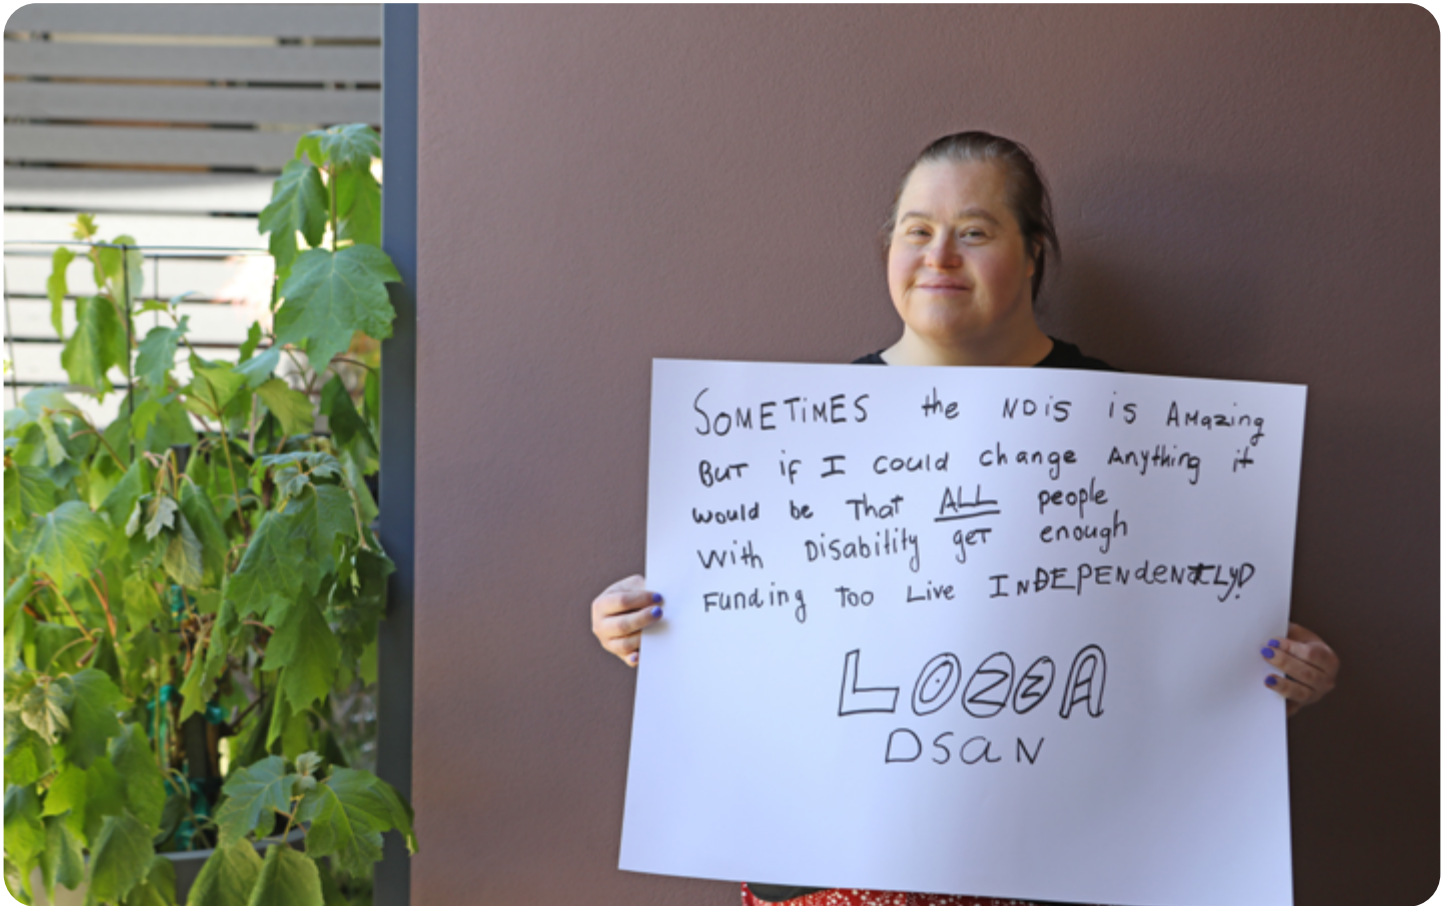 SOMETiMES the NDiS iS AMazing
BuT if I could change Anything it
would be That ALL people
With DiSability geT enough
Funding Too Live INDEPENdeNTLy!
LOZZA
DSaN